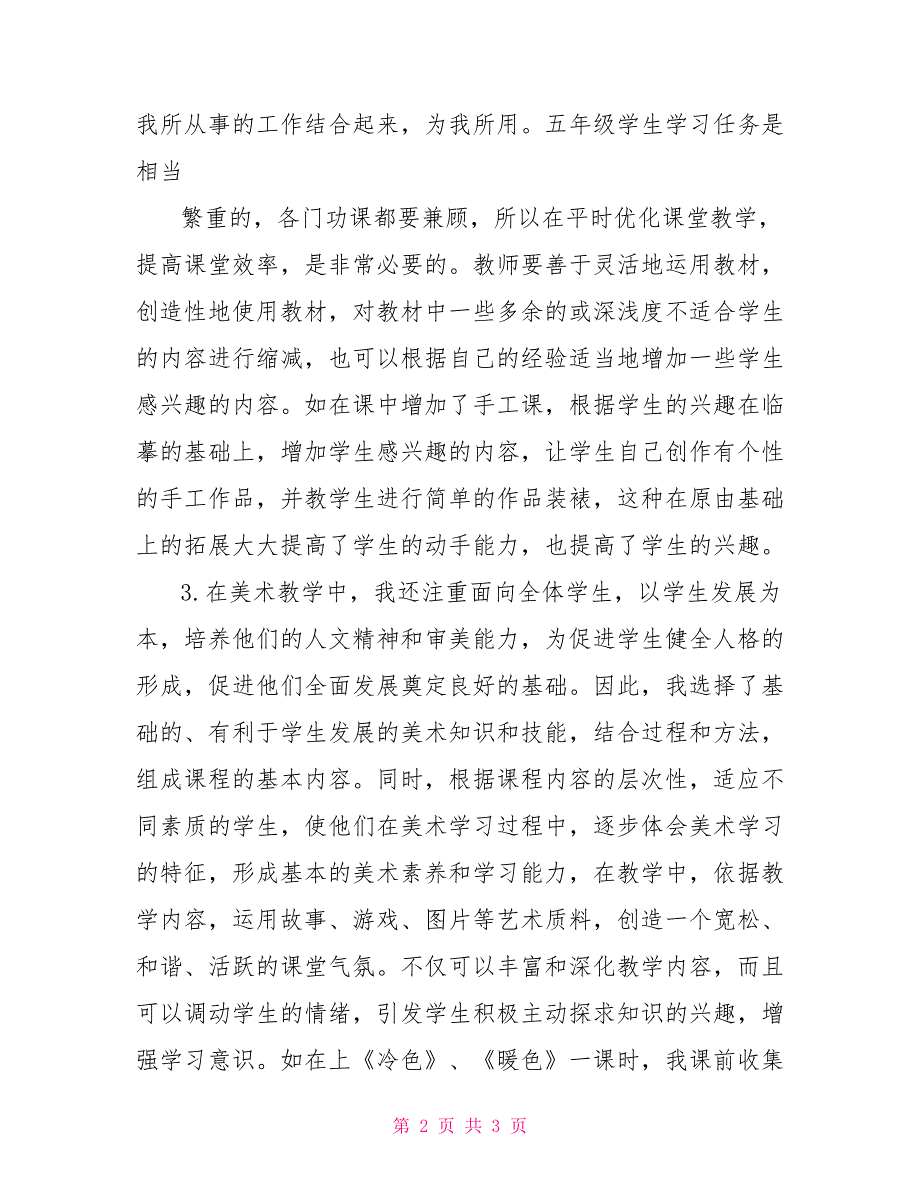 我所从事的工作结合起来，为我所用。五年级学生学习任务是
相当
繁重的，各门功课都要兼顾，所以在平时优化课堂教学，
提高课堂效率，是非常必要的。教师要善于灵活地运用教材，
创造性地使用教材，对教材中一些多余的或深浅度不适合学生
的内容进行缩减，也可以根据自己的经验适当地增加一些学生
感兴趣的内容。如在课中增加了手工课，根据学生的兴趣在临
摹的基础上，增加学生感兴趣的内容，让学生自己创作有个性
的手工作品，并教学生进行简单的作品装裱，这种在原由基础
上的拓展大大提高了学生的动手能力，也提高了学生的兴趣。
3.在美术教学中，我还注重面向全体学生，以学生发展为
本，培养他们的人文精神和审美能力，为促进学生健全人格的
形成，促进他们全面发展奠定良好的基础。因此，我选择了基
础的、有利于学生发展的美术知识和技能，结合过程和方法，
组成课程的基本内容。同时，根据课程内容的层次性，适应不
同素质的学生，使他们在美术学习过程中，逐步体会美术学习
的特征，形成基本的美术素养和学习能力，在教学中，依据教
学内容，运用故事、游戏、图片等艺术质料，创造一个宽松、
和谐、活跃的课堂气氛。不仅可以丰富和深化教学内容，而且
可以调动学生的情绪，引发学生积极主动探求知识的兴趣，增
强学习意识。如在上《冷色》、《暖色》一课时，我课前收集
第 2 页 共 3 页